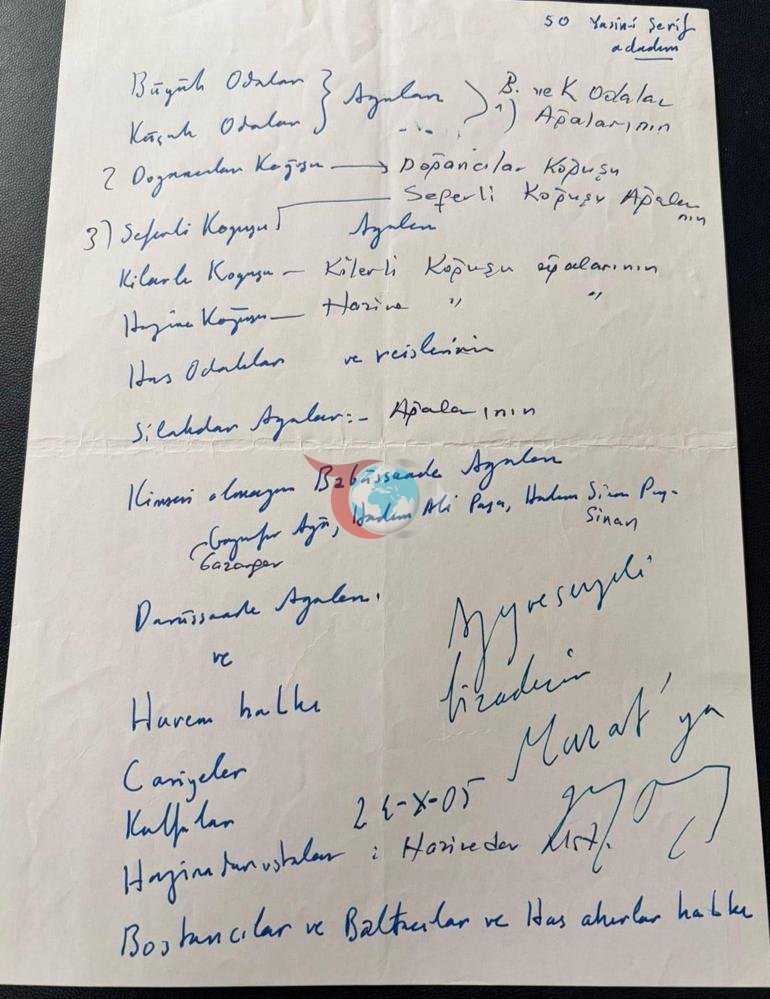 50 Yasin-i Şerif
adadım
Büyük Odaları } Ağaları > B. ve K Odalar
Küçük Odaları 1) Ağalarının
2 Doğancılar Koğuşu → Doğancılar Koğuşu
Seferli Koğuşu Ağaları
nın
3) Seferli Koğuşu Ağaları
Kilerli Koğuşu - Kilerli Koğuşu ağalarının
Hazine Koğuşu - Hazine " "
Has Odalıklar ve reislerinin
Silahdar Ağaları:- Ağalarının
Kimsesi olmayan Babüssaade Ağaları
Gazanfer Ağa, Hadım Ali Paşa, Hadım Sinan Paşa
Gazanfer Sinan
Darüssaade Ağaları
ve
Harem halkı
Cariyeler
Kalfalar
Murat'ya
2 -X-05
Hazinedar ustalar : Hazinedar Ust.
Bostancılar ve Baltacılar ve Has ahırlar halkı